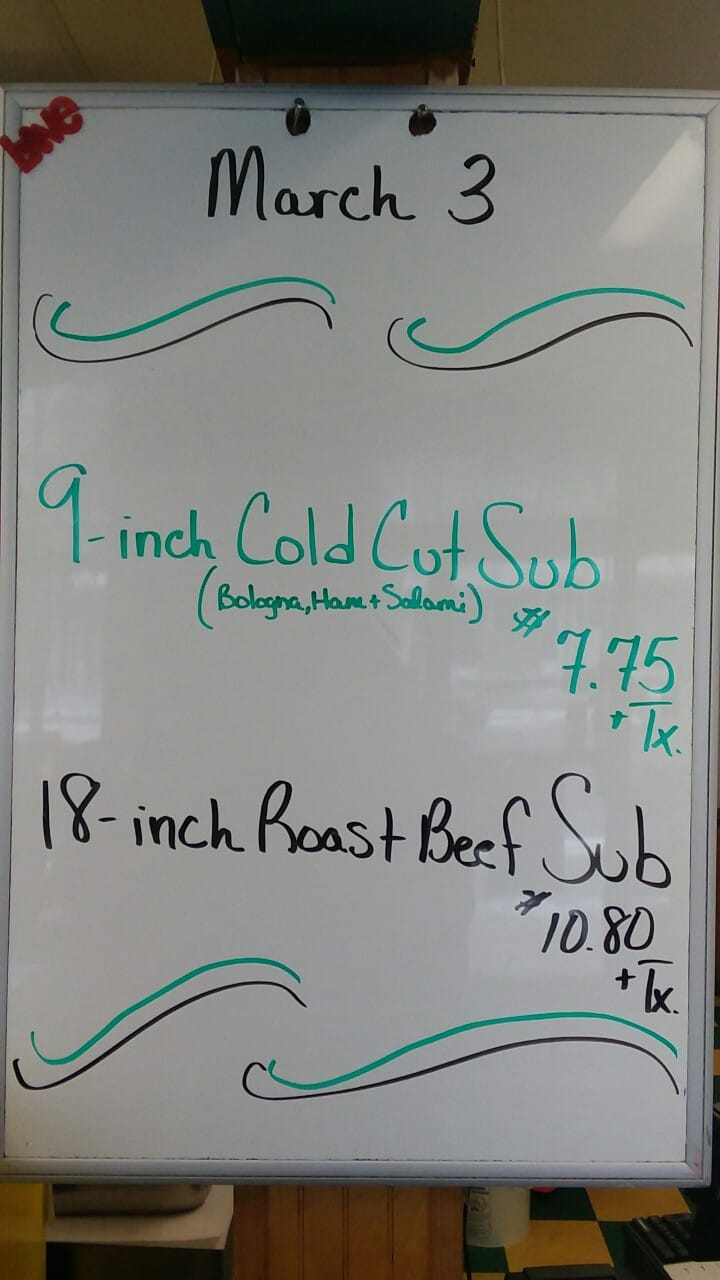 LOVE
March 3
9-inch Cold Cut Sub
(Bologna, Ham + Salami)
$7.75
+ Tx.
18-inch Roast Beef Sub
$10.80
+ Tx.